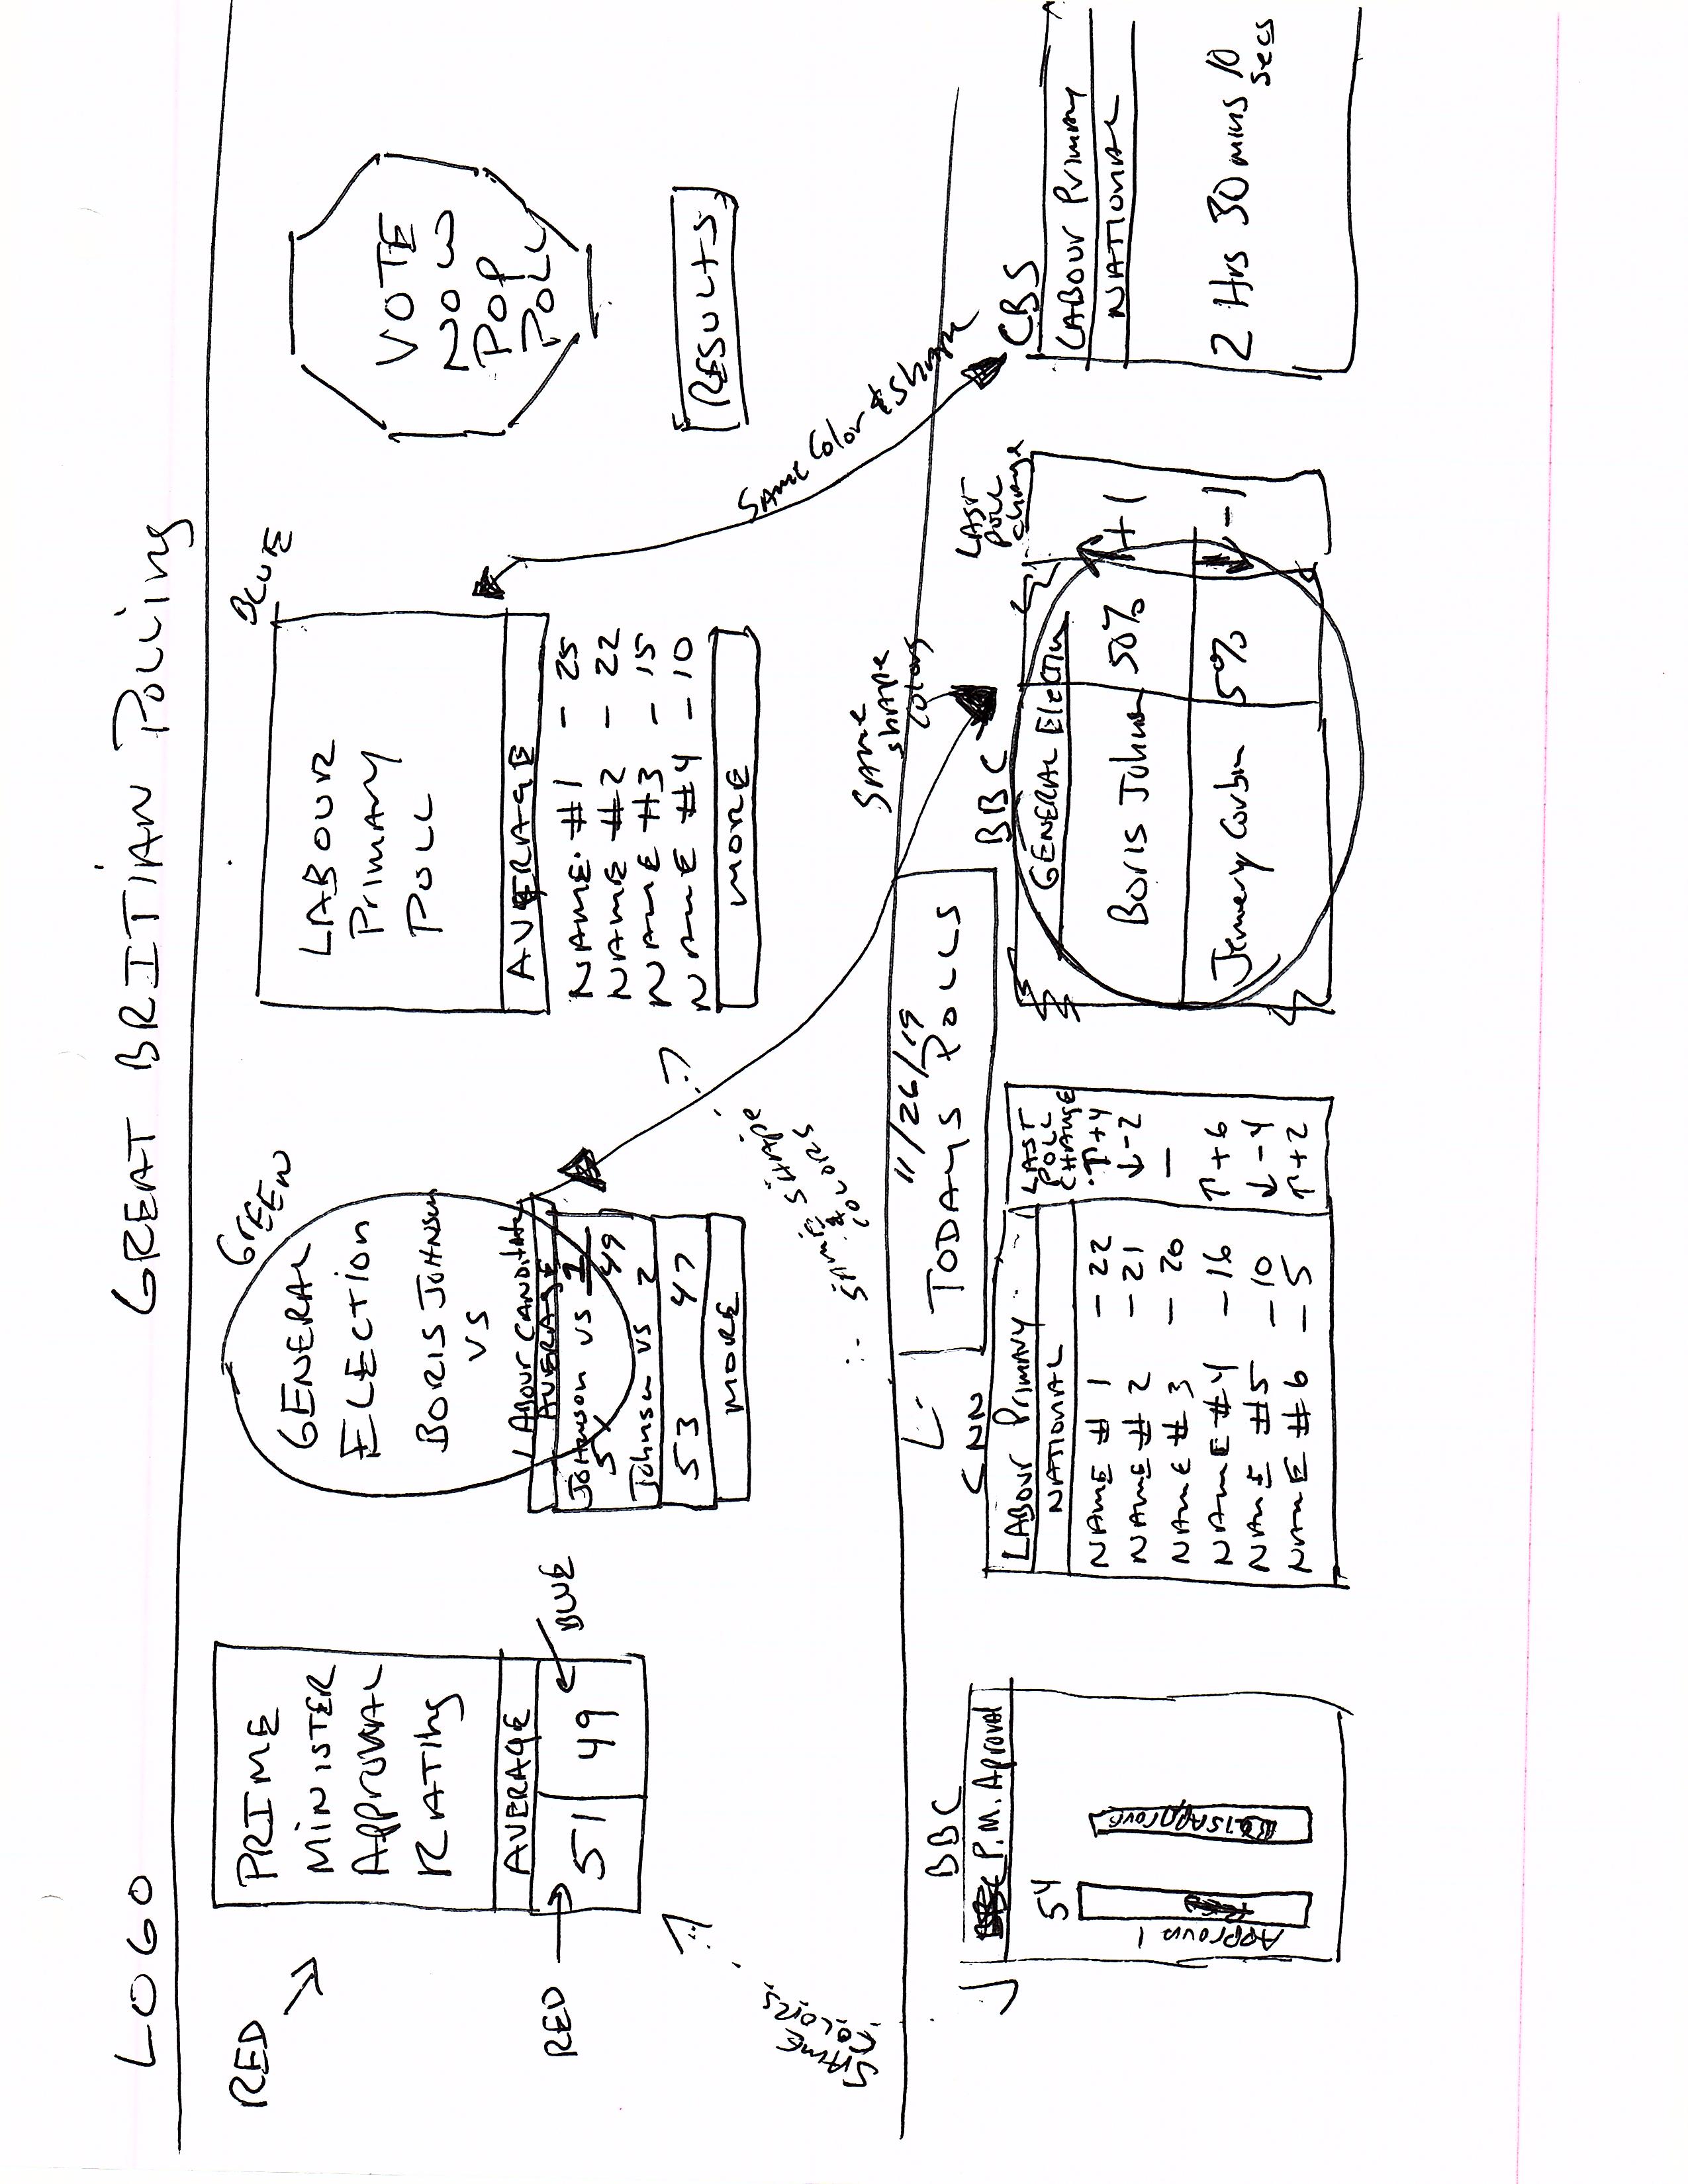 LOGO GREAT BRITIAN POLLING
RED
PRIME
MINISTER
APPROVAL
RATING
AVERAGE
51 49
RED
BLUE
SAME
COLORS
GREEN
GENERAL
ELECTION
BORIS JOHNSON
VS
LABOUR CANDITATE
AVERAGE
JOHNSON VS 1
51 49
Johnson VS 2
53 47
MORE
SAME SHAPE
& COLORS
BLUE
LABOUR
PRIMARY
POLL
AVERAGE
NAME #1 - 25
NAME #2 - 22
NAME #3 - 15
NAME #4 - 10
MORE
SAME Color & Shape
VOTE
NOW
POP
POLL
RESULTS
SAME
SHAPE
COLORS
11/26/19
TODAYS POLLS
BBC
P.M. Aproval
54
Approval
DISApprove
CNN
LABOUR PRIMARY
NATIONAL
LAST
POLL
CHANGE
NAME #1 - 22 ↑+4
NAME #2 - 21 ↓-2
NAME #3 - 20 —
NAME #4 - 16 ↑+6
NAME #5 - 10 ↓-4
NAME #6 - 5 ↑+2
BBC
GENERAL Election
LAST
POLL
change
Boris Johnson 50% ↑+1
5% ↓-1
CBS
LABOUR Primary
NATIONAL
2 Hrs 30 mins 10
secs